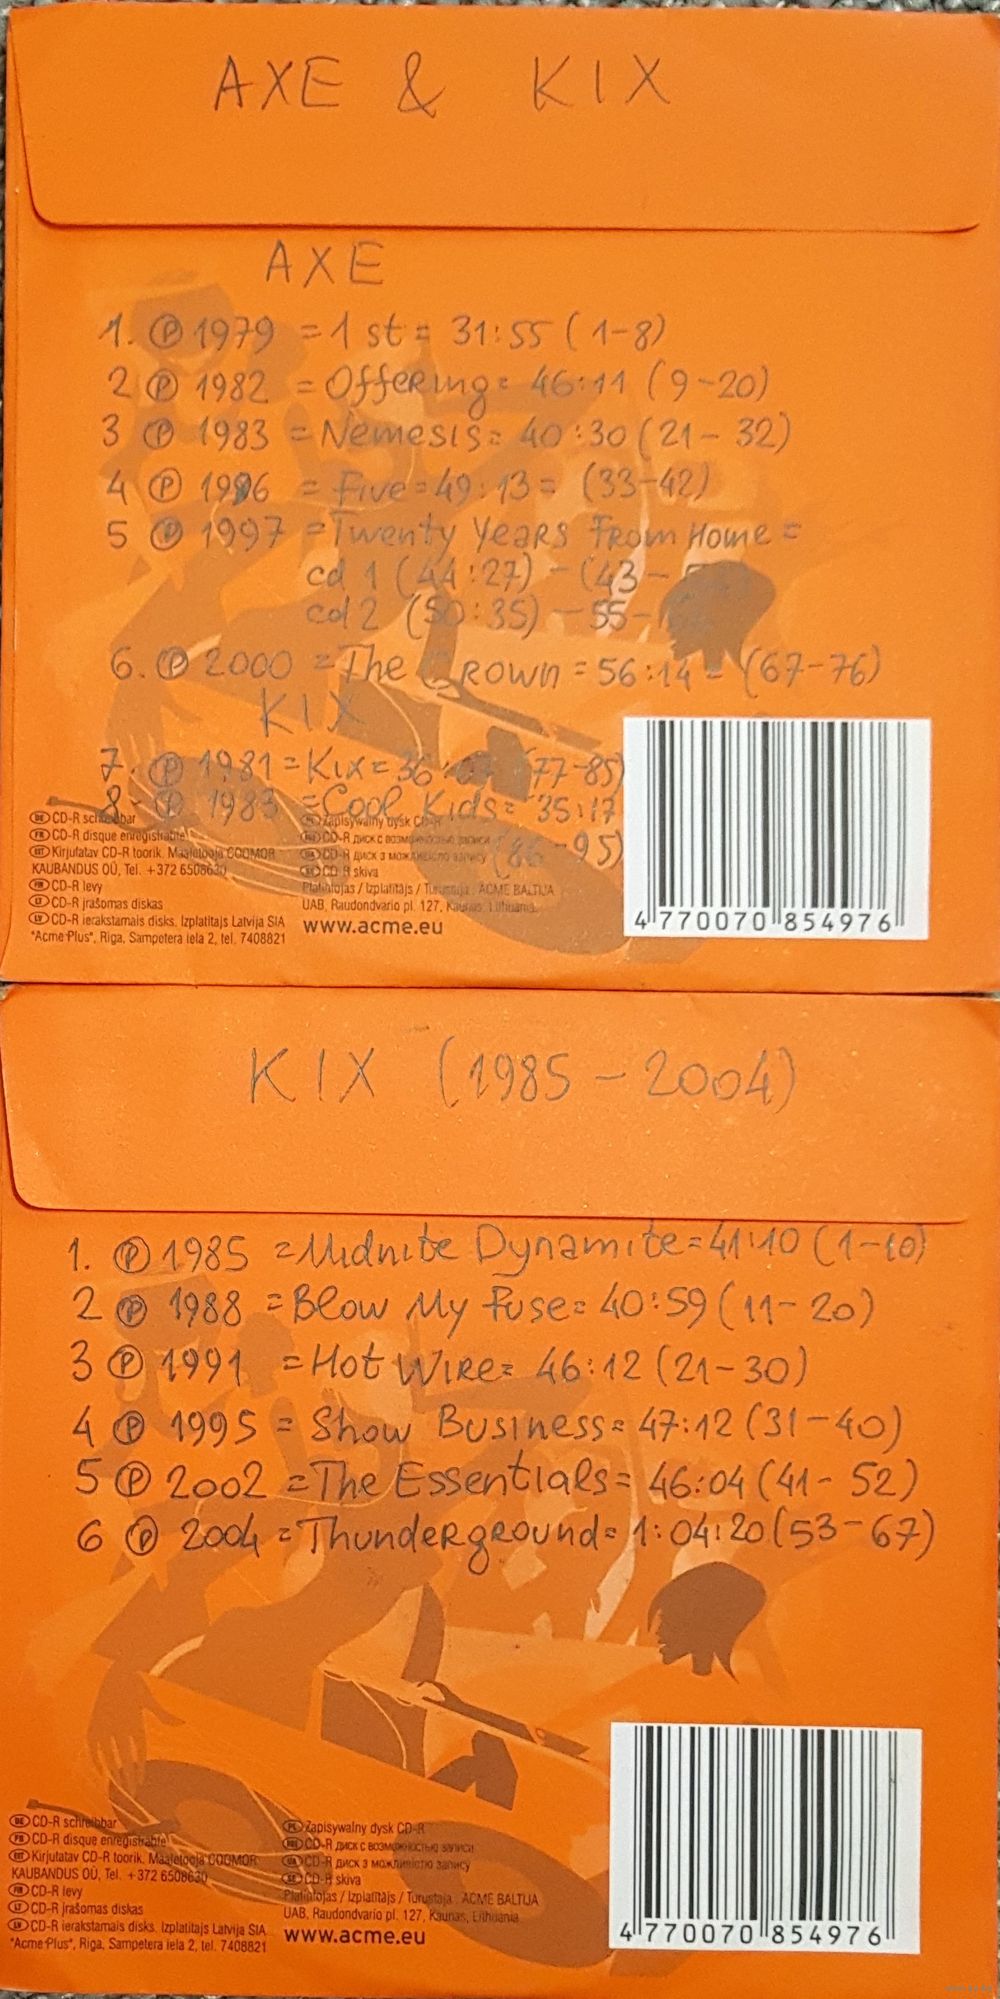 AXE & KIX
AXE
1. Ⓟ 1979 = 1 st = 31:55 (1-8)
2 Ⓟ 1982 = Offering = 46:11 (9-20)
3 Ⓟ 1983 = Nemesis = 40:30 (21-32)
4 Ⓟ 1996 = Five = 49:13 = (33-42)
5 Ⓟ 1997 = Twenty Years From Home =
cd 1 (44:27) - (43-
cd 2 (50:35) - 55-
6. Ⓟ 2000 = The Crown = 56:14 = (67-76)
KIX
7. Ⓟ 1981 = Kix = 36: (77-85)
8. Ⓟ 1983 = Cool Kids = 35:17
(86-95)
DE CD-R schreibbar
FR CD-R disque enregistrable
EST Kirjutatav CD-R toorik. Maaletooja COOMOR
KAUBANDUS OÜ, Tel. +372 6508630
FIN CD-R levy
LT CD-R įrašomas diskas
LV CD-R ierakstamais disks. Izplatitajs Latvija SIA
"Acme Plus", Riga, Sampetera iela 2, tel. 7408821
PL Zapisywalny dysk CD-R
RUS CD-R диск с возможностью записи
UA CD-R диск з можливістю запису
SE CD-R skiva
Platintojas / Izplatītājs / Turustaja : ACME BALTIJA
UAB, Raudondvario pl. 127, Kaunas, Lithuania.
www.acme.eu
4 770070 854976
KIX (1985 - 2004)
1. Ⓟ 1985 = Midnite Dynamite = 41:10 (1-10)
2 Ⓟ 1988 = Blow My Fuse = 40:59 (11-20)
3 Ⓟ 1991 = Hot Wire = 46:12 (21-30)
4 Ⓟ 1995 = Show Business = 47:12 (31-40)
5 Ⓟ 2002 = The Essentials = 46:04 (41-52)
6 Ⓟ 2004 = Thunderground = 1:04:20 (53-67)
DE CD-R schreibbar
FR CD-R disque enregistrable
EST Kirjutatav CD-R toorik. Maaletooja COOMOR
KAUBANDUS OÜ, Tel. +372 6508630
FIN CD-R levy
LT CD-R įrašomas diskas
LV CD-R ierakstamais disks. Izplatitajs Latvija SIA
"Acme Plus", Riga, Sampetera iela 2, tel. 7408821
PL Zapisywalny dysk CD-R
RUS CD-R диск с возможностью записи
UA CD-R диск з можливістю запису
SE CD-R skiva
Platintojas / Izplatītājs / Turustaja : ACME BALTIJA
UAB, Raudondvario pl. 127, Kaunas, Lithuania
www.acme.eu
4 770070 854976